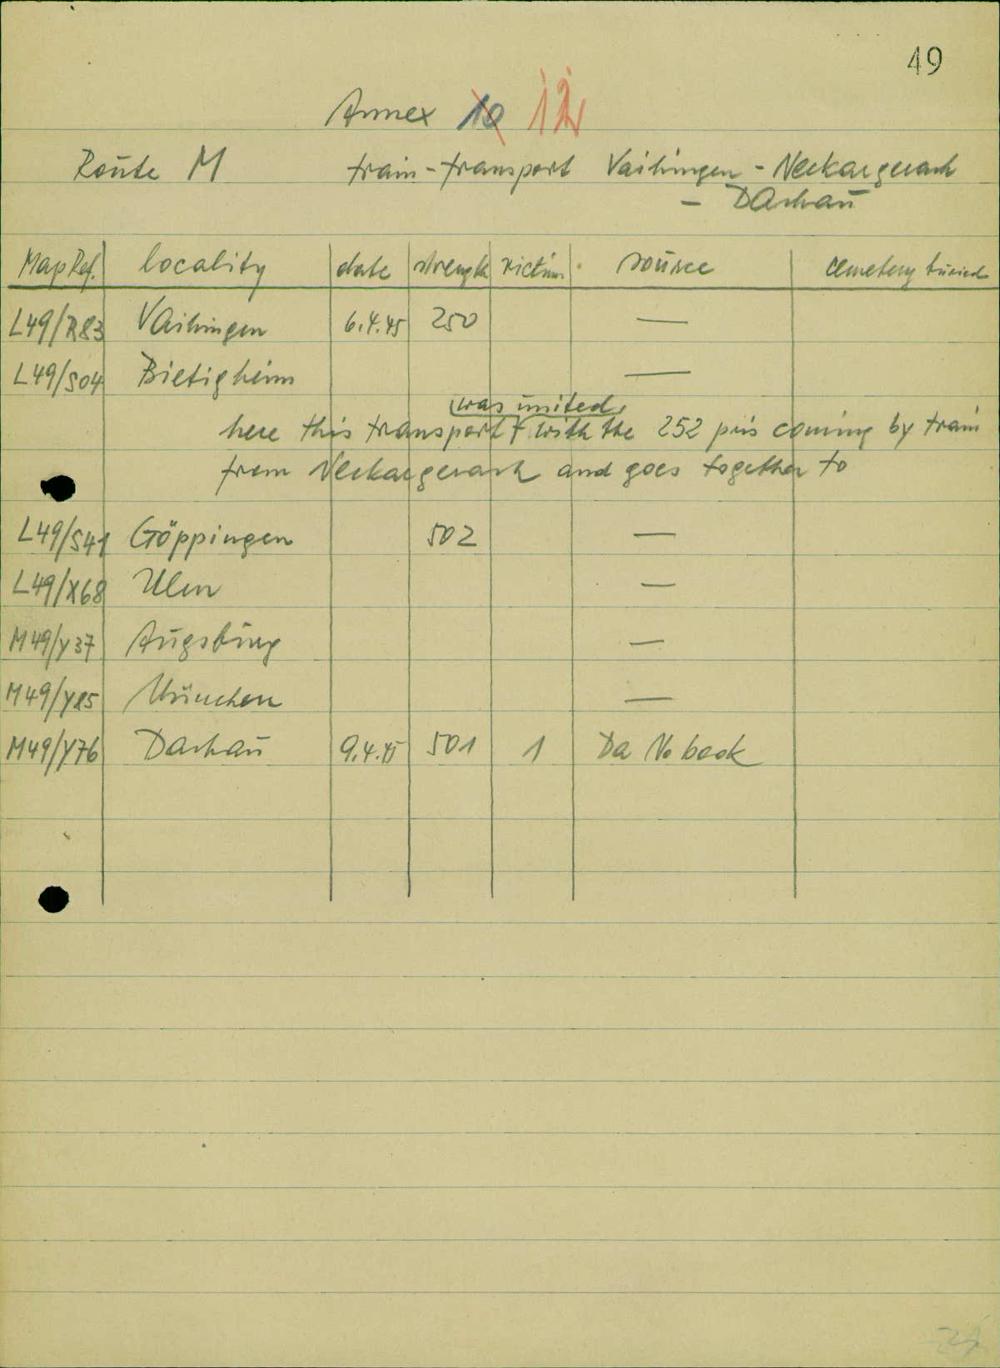 49
Annex 10 12
Route M train-transport Vaihingen - Neckargerach
- Dachau
Map Ref. locality date strength victims source cemetery buried
L49/R83 Vaihingen 6.4.45 250 —
L49/S04 Bietigheim —
was united
here this transport with the 252 pris coming by train
from Neckargerach and goes together to
L49/S41 Göppingen 502 —
L49/X68 Ulm —
M49/Y37 Augsburg —
M49/Y85 München —
M49/Y76 Dachau 9.4.45 501 1 Da No book